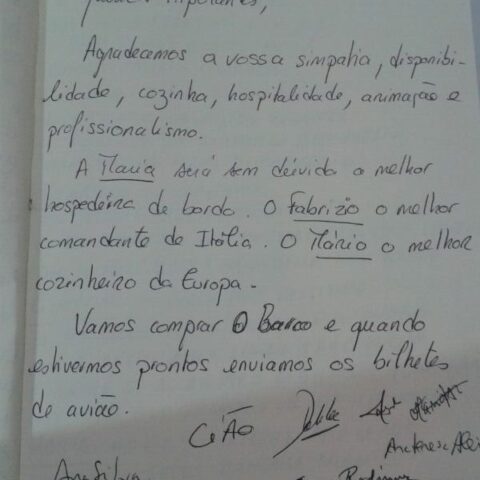 Agradecemos a vossa simpatia, disponibi-
lidade, cozinha, hospitalidade, animação e
profissionalismo.
A Maria será sem dúvida a melhor
hospedeira de bordo. O Fabrizio o melhor
comandante de Itália. O Mário o melhor
cozinheiro da Europa.
Vamos comprar O Barco e quando
estivermos prontos enviamos os bilhetes
de avião.
CiÃO